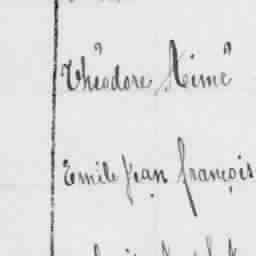 Théodore Aimé
Emile Jean françois